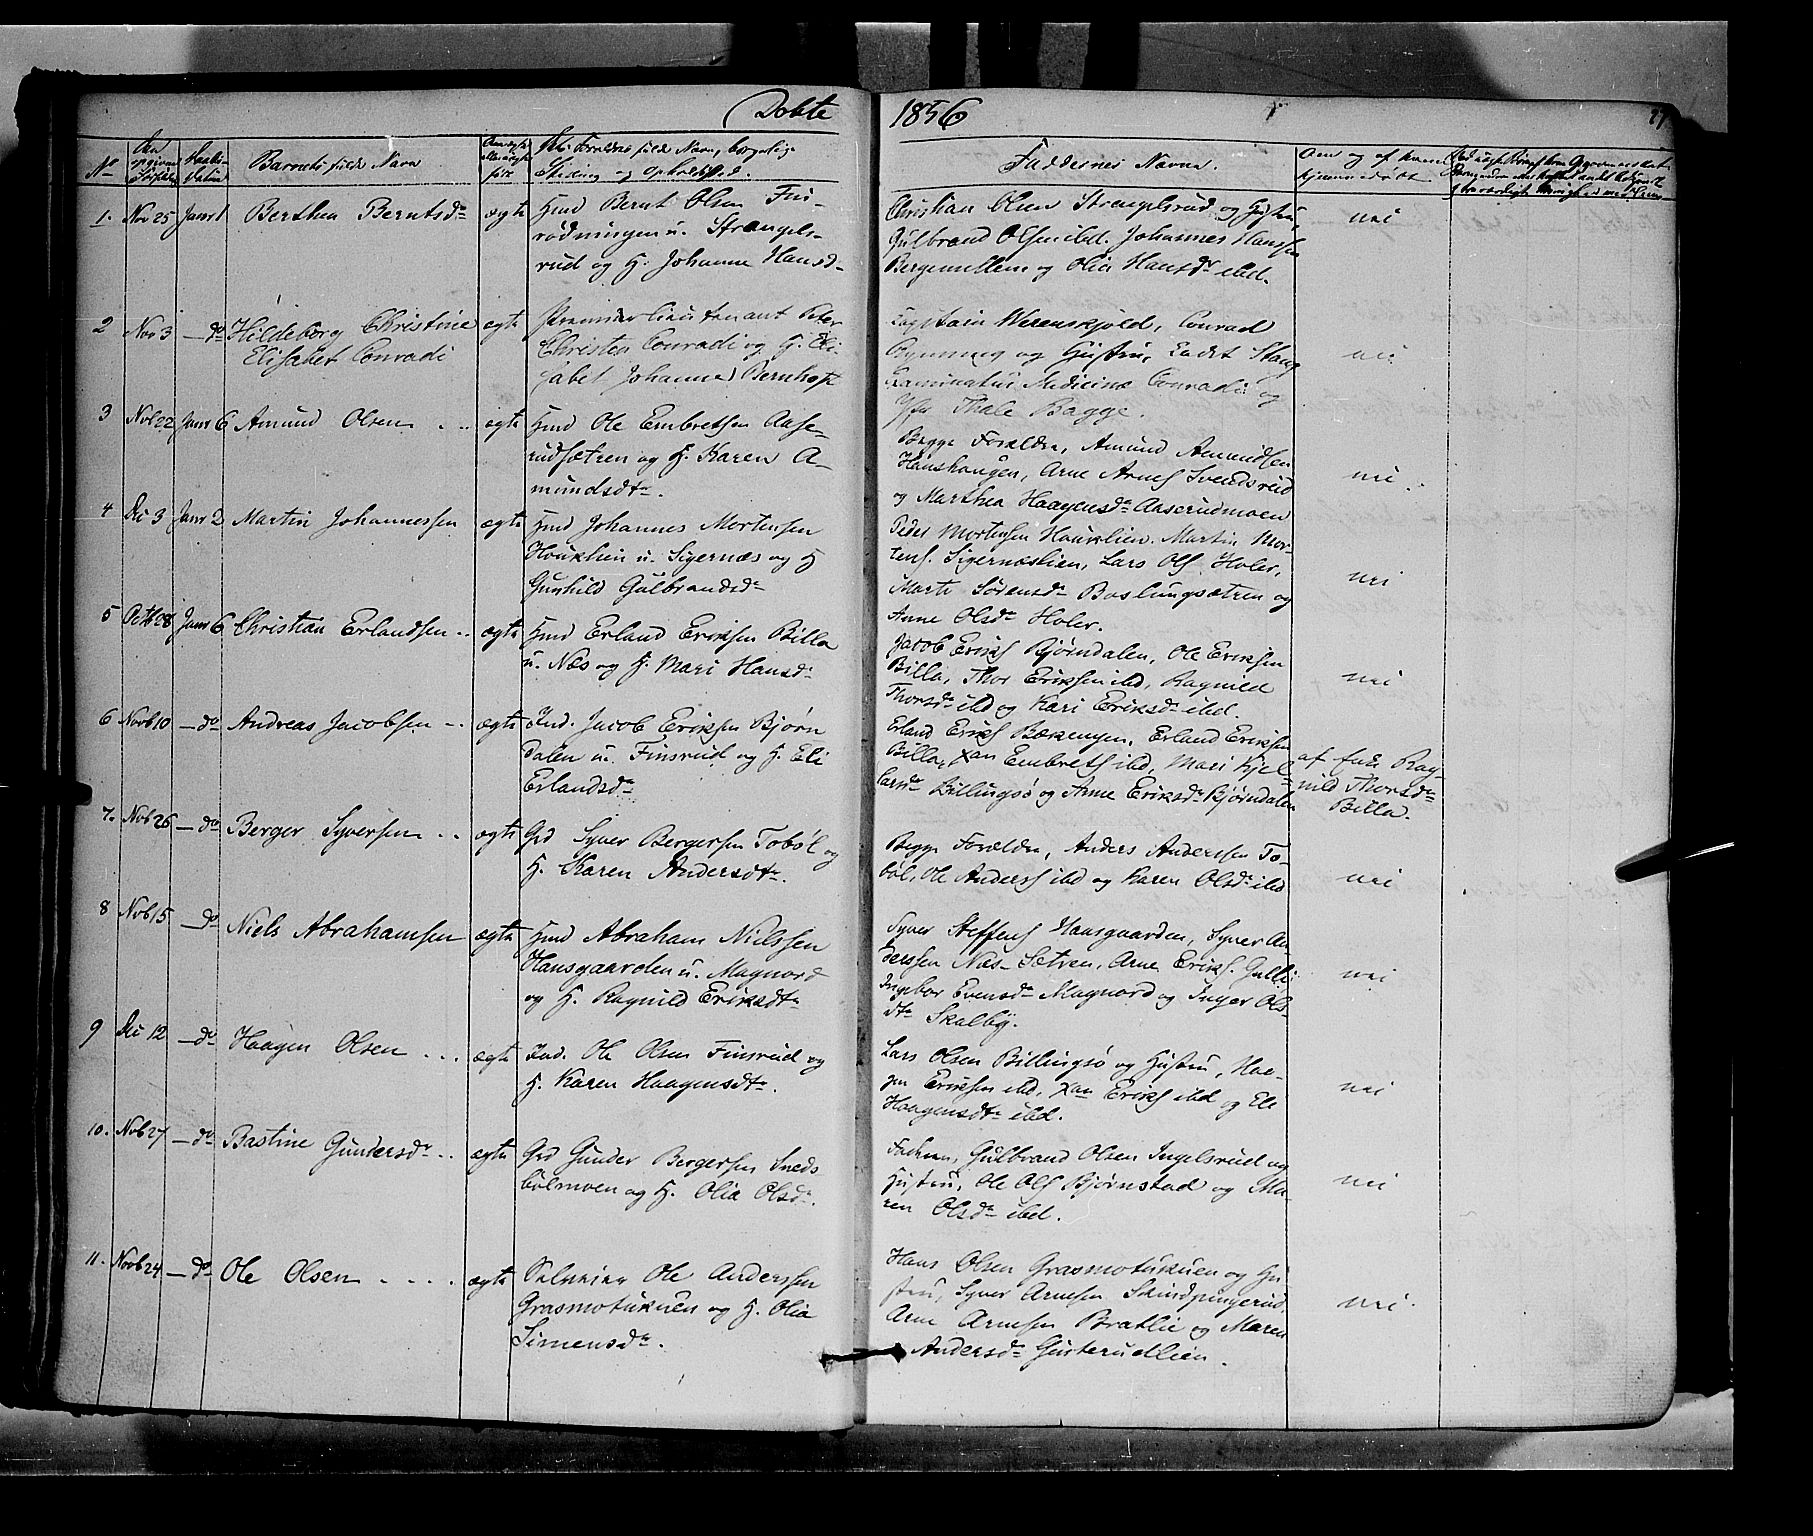 Døbte 1856
No
Barnets fulde Navn
Stilling og Opholdsted.
Faddernes Navne.
1. Nov 25 Janr 1 Berthea Berntsdr ægte Hmd Bernt Olsen Fin-
rødningen u. Strangels-
rud og H. Johanne Hansd-
Christian Olsen Strangelsrud og Hustru,
Gulbrand Olsen ibd. Johannes Hanssen
Bergemellem og Olia Hansdr ibd.
nei
2 Nov 3 - do Hildeborg Christine ægte Premierlieutenant Peter
Elisabet Conradi
Christen Conradi og H. Eli-
sabet Johanne Bernhoft
Capitain Werenskjold, Conrad
og Hustru, Cadet Stang
Examinatus Medicinæ Conradi og
Jfr Thale Bagge.
nei
3 Novb 22 Janr 6 Amund Olsen ægte Hmd Ole Embretsen Aase-
rudsætren og H. Karen A-
mundsdtr.
Begge Forældre, Amund Amundsen
Hanshaugen, Arne Arnes Svendsrud
og Marthea Haagensdr Aaserudmoen
nei
4 De 3 Janr 2 Martin Johannessen ægte Hmd Johannes Mortensen
Houklien u. Sigernæs og H
Gunhild Gulbrandsdr
Peder Mortensen Houklien. Martin Mor-
tens. Sigernæslien, Lars Ols Holer,
Marte Sørensdr Baslungsætren og
Anne Olsdr Holer.
nei
5 Octb 28 Janr 6 Christian Erlandsen ægte Hmd Erland Eriksen Billa
u. Næs og H. Mari Hansdr
Jacob Eriks Bjørndalen, Ole Eriksen
Billa, Thor Eriksen ibd, Ragnild
Thorsdr ibd og Kari Eriksdr ibd.
nei
6 Novb 10 - do Andreas Jacobsen ægte Ind. Jacob Eriksen Bjørn
dalen u. Finsrud og H. Eli
Erlandsdr
Erland Eriks Bækengen, Erland Eriksen
Billa, Xan Embrets ibd, Mari Kjel-
larsdr Billingsø og Anne Eriksdr Bjørndalen
af Rag-
nild Thorsdr
Billa.
7. Novb 26 - do Berger Syversen ægte Grd Syver Bergersen Tobøl og
H. Karen Andersdtr.
Begge Forældre, Anders Anderssen To-
bøl, Ole Anders ibd og Karen Olsdr ibd
nei
8 Novb 15 - do Niels Abrahamsen ægte Hmd Abraham Nielssen
Hansgaarden u. Magnord
og H. Ragnild Eriksdtr
Syver Steffens Hansgaarden, Syver An-
derssen Næs-Sætren, Arne Eriks. Gulli
Ingebor Evensdr Magnord og Inger Ols-
dtr Skalby.
nei
9 De 12 - do Haagen Olsen ægte Ind. Ole Olsen Finsrud og
H. Karen Haagensdtr.
Lars Olsen Billingsø og Hustru, Haa-
gen Eriksen ibd, Xan Eriks ibd og Eli
Haagensdtr ibd.
nei
10. Novb 27 - do Bastine Gundersdr ægte Grd Gunder Bergersen Sneds
bølmoen og H. Olia Olsdr.
Faderen, Gulbrand Olsen Ingelsrud og
Hustru, Ole Ols Bjørnstad og Ma-
ren Olsdr ibd.
nei
11. Novb 24 - do Ole Olsen ægte Ole Anderssen
Grasmotukuen og H. Olia
Simensdr.
Hans Olsen Grasmotukuen og Hu-
stru, Syver Arnesen Skindpungerud
Arne Arnesen Bratlie og Maren
Andersdr Gusterudlien.
nei